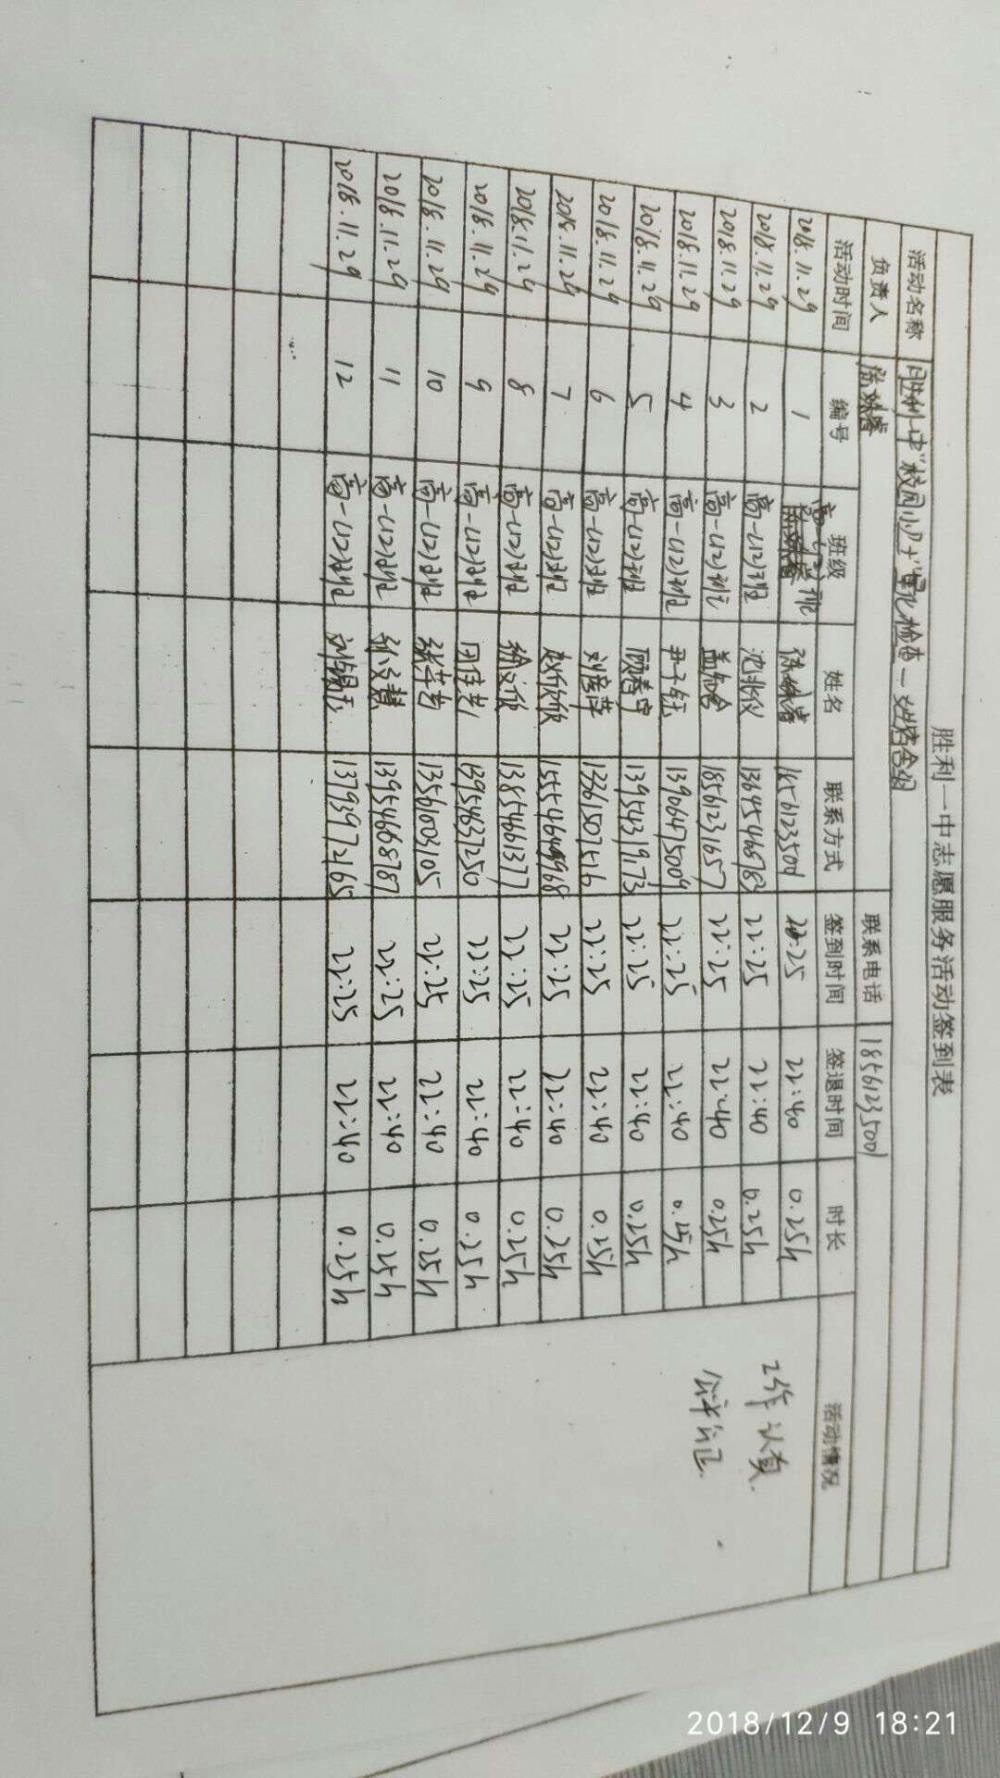 胜利一中志愿服务活动签到表
活动名称 胜利一中"校园小卫士"量化检查—
负责人 联系电话 18561235001
活动时间 编号 班级 姓名 联系方式 签到时间 签退时间 时长 活动情况
2018.11.29 1 高一(12)班 18561235001 22:25 22:40 0.25h 工作认真
2018.11.29 2 高一(12)班 沈兆仪 22:25 22:40 0.25h
2018.11.29 3 高一(12)班 18561231657 22:25 22:40 0.25h 公平公正
2018.11.29 4 高一(12)班 尹子钰 13906475009 22:25 22:40 0.25h
2018.11.29 5 高一(12)班 顾春宁 13954319173 22:25 22:40 0.25h
2018.11.29 6 高一(12)班 13361507516 22:25 22:40 0.25h
2018.11.29 7 高一(12)班 赵欣欣 22:25 22:40 0.25h
2018.11.29 8 高一(12)班 徐文欣 13854661377 22:25 22:40 0.25h
2018.11.29 9 高一(12)班 田佳艺 13954637250 22:25 22:40 0.25h
2018.11.29 10 高一(12)班 13561003105 22:25 22:40 0.25h
2018.11.29 11 高一(12)班 13954668787 22:25 22:40 0.25h
2018.11.29 12 高一(12)班 13793972165 22:25 22:40 0.25h
2018/12/9 18:21